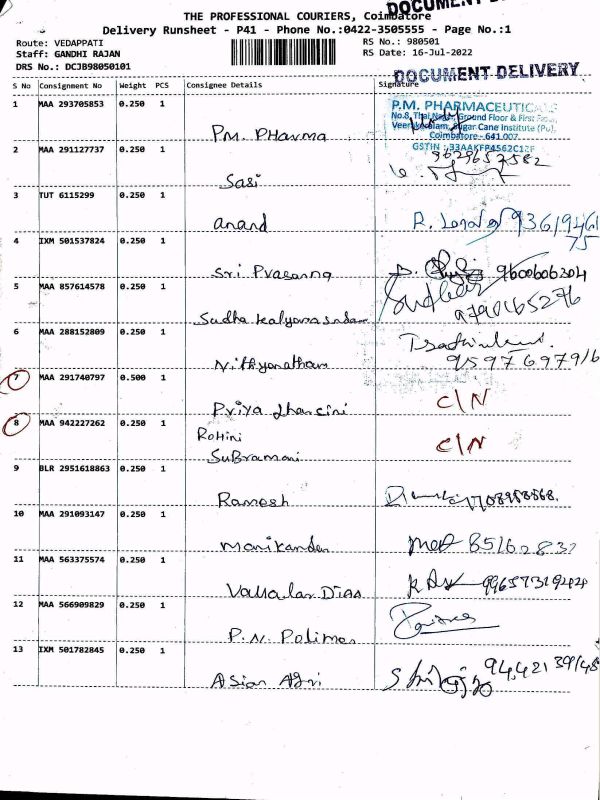 DOCUMENT DE
THE PROFESSIONAL COURIERS, Coimbatore
Delivery Runsheet - P41 - Phone No.:0422-3505555 - Page No.:1
Route: VEDAPPATI RS No.: 980501
Staff: GANDHI RAJAN RS Date: 16-Jul-2022
DRS No.: DCJB98050101
DOCUMENT DELIVERY
S No Consignment No Weight PCS Consignee Details Signature
P.M. PHARMACEUTICALS
No.8, Thai Nagar, Ground Floor & First Floor,
Veerakeralam, Sugar Cane Institute (Po),
Coimbatore - 641 007.
GSTIN : 33AAKFP4562C1ZF
1 MAA 293705853 0.250 1 P.M. PHarma
2 MAA 291127737 0.250 1 Sasi 9629657582
3 TUT 6115299 0.250 1 anand 93619461
75
4 IXM 501537824 0.250 1 Sri Prasanna 9600606304
5 MAA 857614578 0.250 1 Sudha kalyanasundaram Sudha 9790165276
6 MAA 288152809 0.250 1 Nithyanatham 9597697916
7 MAA 291740797 0.500 1 Priya dharsini C/N
8 MAA 942227262 0.250 1 ROHini
SuBramani C/N
9 BLR 2951618863 0.250 1 Ramesh
10 MAA 291093147 0.250 1 Manikandan 85162832
11 MAA 563375574 0.250 1 Vallalar DIAA
12 MAA 566909829 0.250 1 P.N. Polimer
13 IXM 501782845 0.250 1 Asian Agri 9442139148